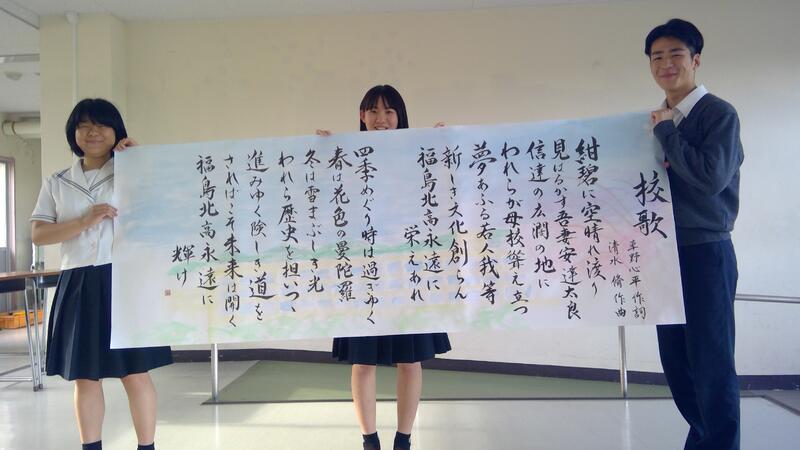 校歌
草野心平 作詞
清水脩 作曲
紺碧に空晴れ渡り
見はるかす吾妻安達太良
信達の広濶の地に
われらが母校聳え立つ
夢あふる若人我等
新しき文化創らん
福島北高永遠に
栄えあれ
四季めぐり時は過ぎゆく
春は花色の曼陀羅
冬は雪まぶしき光
われら歴史を担いつゝ
進みゆく険しき道を
さればこそ未来は開く
福島北高永遠に
輝け